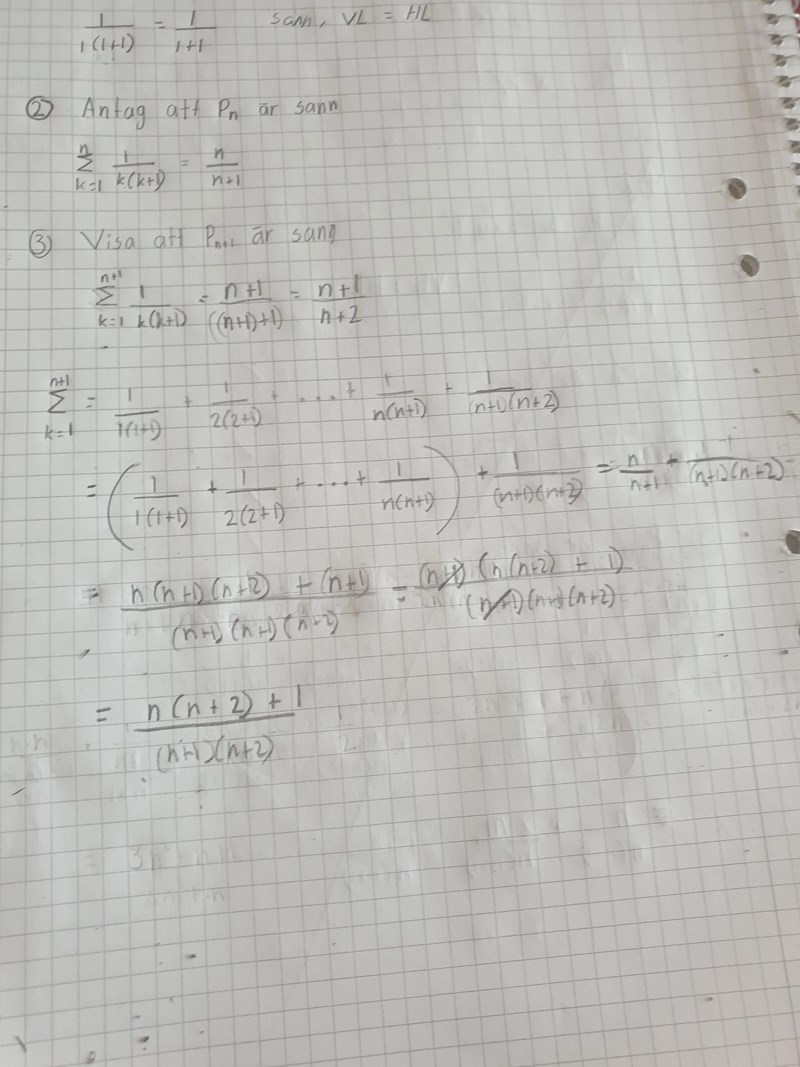 1/(1(1+1)) = 1/(1+1) sann, VL = HL
② Antag att Pₙ är sann
∑_{k=1}^{n} 1/(k(k+1)) = n/(n+1)
③ Visa att Pₙ₊₁ är sann
∑_{k=1}^{n+1} 1/(k(k+1)) = (n+1)/((n+1)+1) = (n+1)/(n+2)
∑_{k=1}^{n+1} = 1/(1(1+1)) + 1/(2(2+1)) + ... + 1/(n(n+1)) + 1/((n+1)(n+2))
= (1/(1(1+1)) + 1/(2(2+1)) + ... + 1/(n(n+1))) + 1/((n+1)(n+2)) = n/(n+1) + 1/((n+1)(n+2))
= (n(n+1)(n+2) + (n+1))/((n+1)(n+1)(n+2)) = ((n+1)(n(n+2) + 1))/((n+1)(n+1)(n+2))
= (n(n+2) + 1)/((n+1)(n+2))